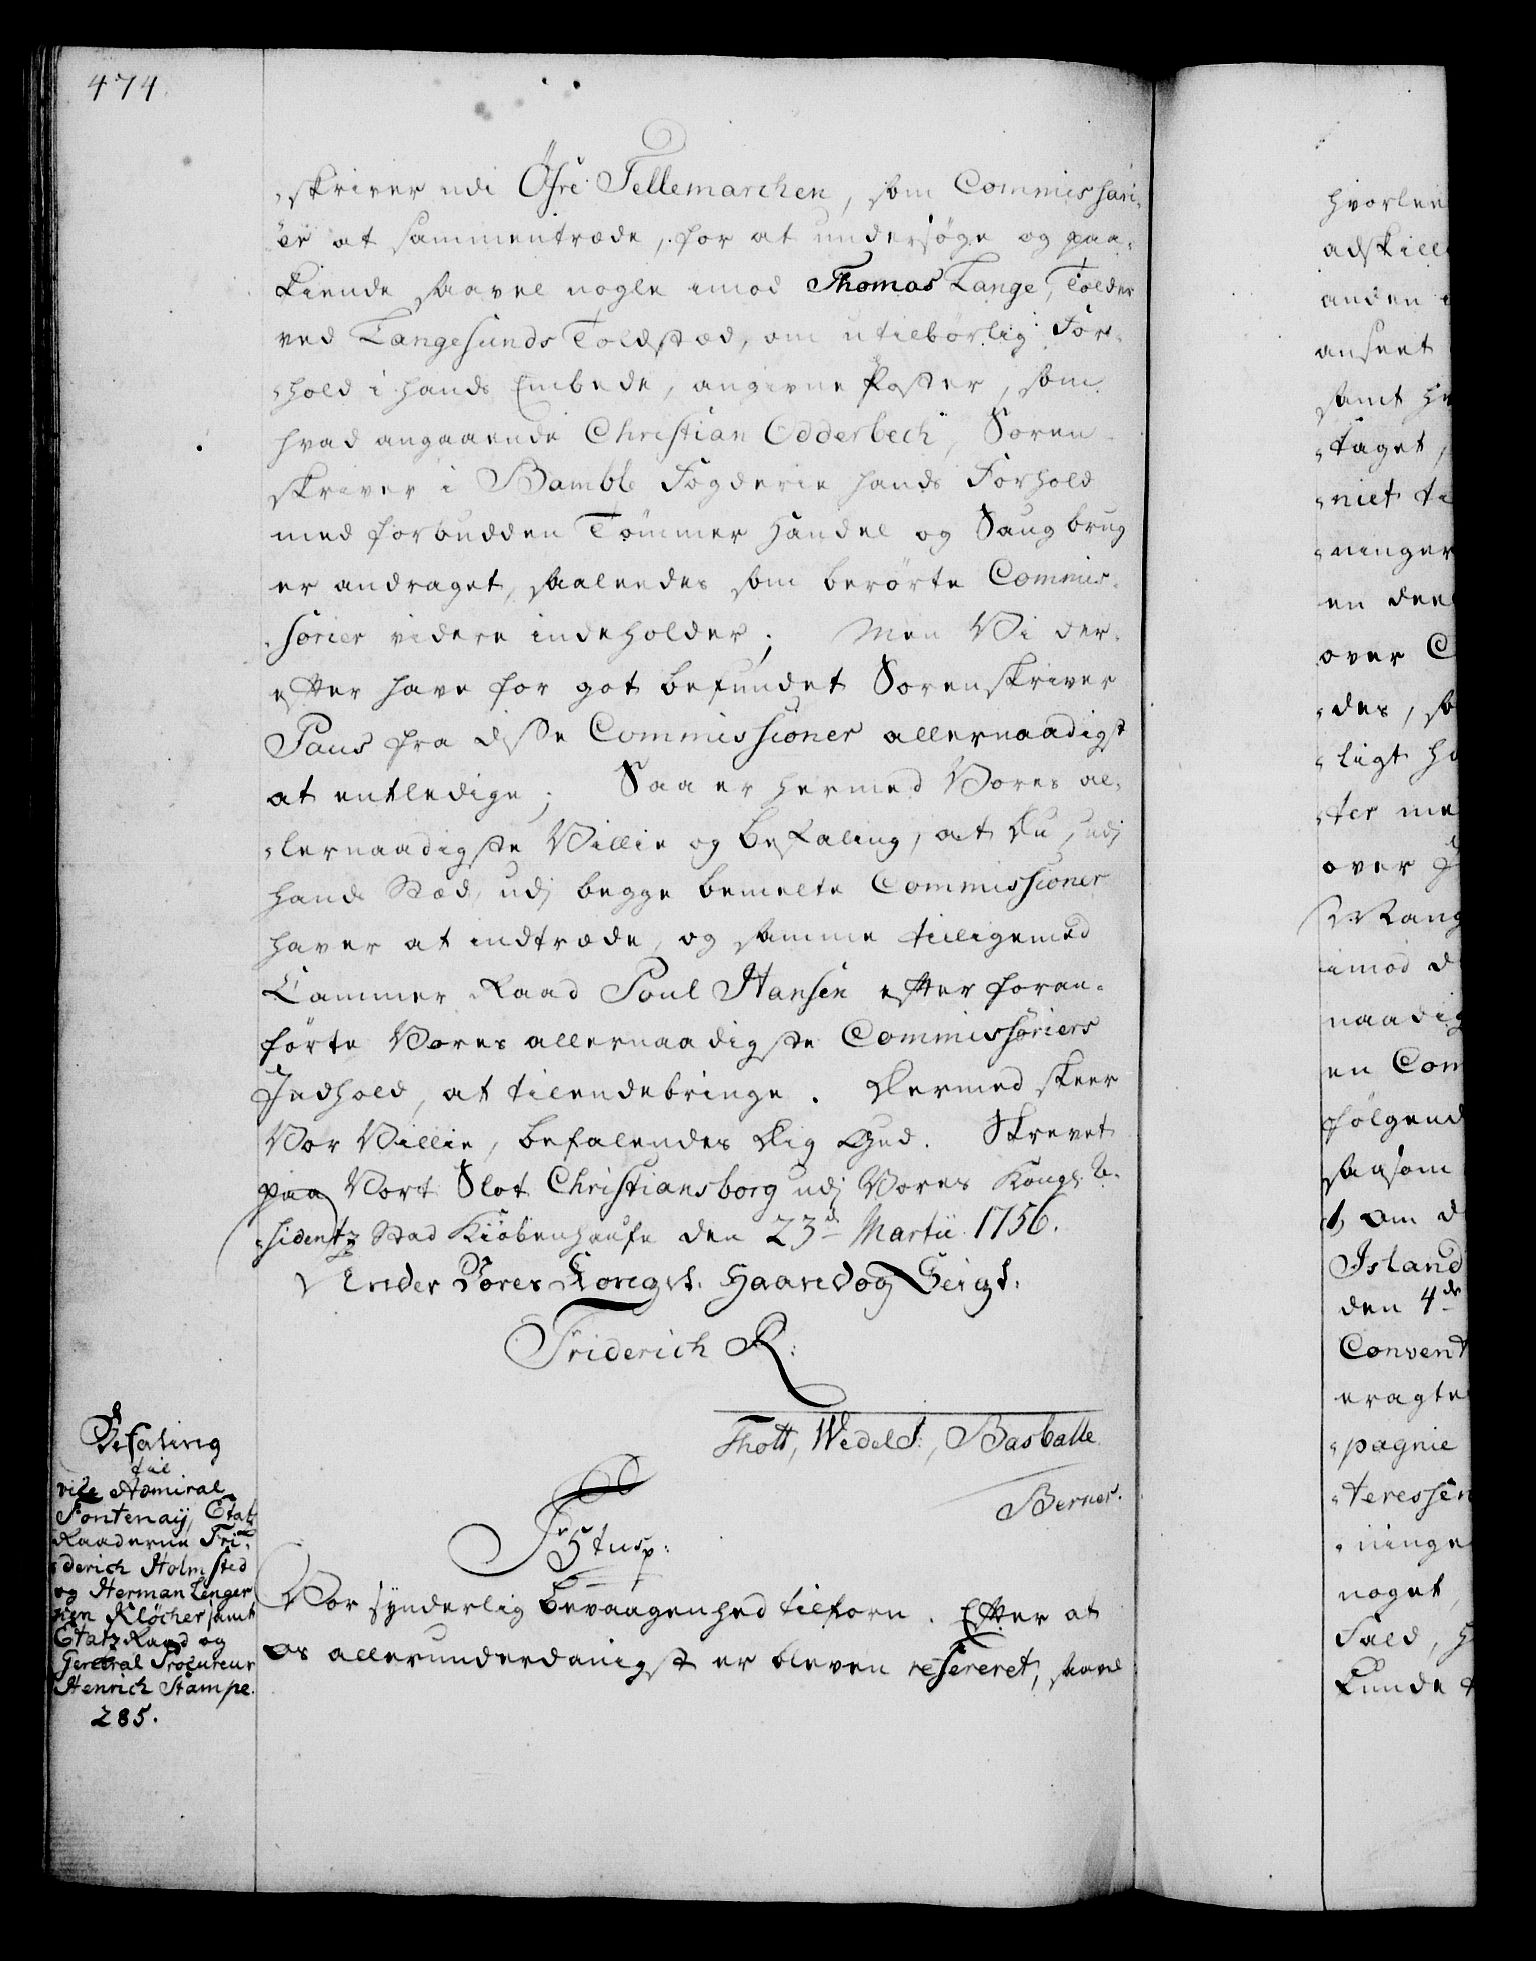 474.
skriver udi Öfre Tellemarchen, som Commissari-
er at sammentræde, for at undersøge og paa-
kiende saavel nogle imod Thomas Lange, Tolder
ved Langesunds Toldstæd, om utilbørlig For-
hold i hands Embede, angivne Poster, som
hvad angaaende Christian Odderbech, Soren-
skriver i Bamble Fogderie hands Forhold
med forbudden Tømmer Handel og Saugbrug
er andraget, saaledes som berørte Commis-
sorier videre indeholder; Men Vi der-
efter have for got befundet Sorenskriver
Paus fra disse Commissioner allernaadigst
at entledige; Saa er hermed Vores al-
lernaadigste Villie og Befaling, at Du, udj
hands Stæd, udj begge bemelte Commissioner
haver at indtræde, og samme tilligemed
Cammer Raad Poul Hansen efter foran-
førte Vores allernaadigste Commissoriers
Indhold, at tilendebringe. Dermed skeer
Vor Villie, befalendes Dig Gud. Skrevet
paa Vort Slot Christiansborg udj Vores Kongl: Re-
sidentz Stad Kiøbenhaufn den 23de Martii 1756.
Under Vores Kongel. Haand og Seigl.
Friderich R:
Thott, Wedels:, Basballe
Berner.
Befaling
til
vice Admiral
Fontenaij, Etatz
Raaderne Fri-
derich Holmsted
og Herman Lenger
ken Klöcher samt
Etatz Raad og
General Procureur
Henrich Stampe.
285.
F 5tusp:
Vor synderlig Bevaagenhed tilforn. Efter at
os allerunderdanigst er bleven refereret, saavel
hvorlee
adskille
anden i
anseet
samt hv
taget,
niet ti
ninger
en deel
over C
des, so
ligt ha
ter me
over J
Mang
imod d
naadig
en Com
følgend
saasom
1, om d
Island
den 4de
Convent
eragte
pagnie
teressen
ninge
noget,
Fald, h
kunde t